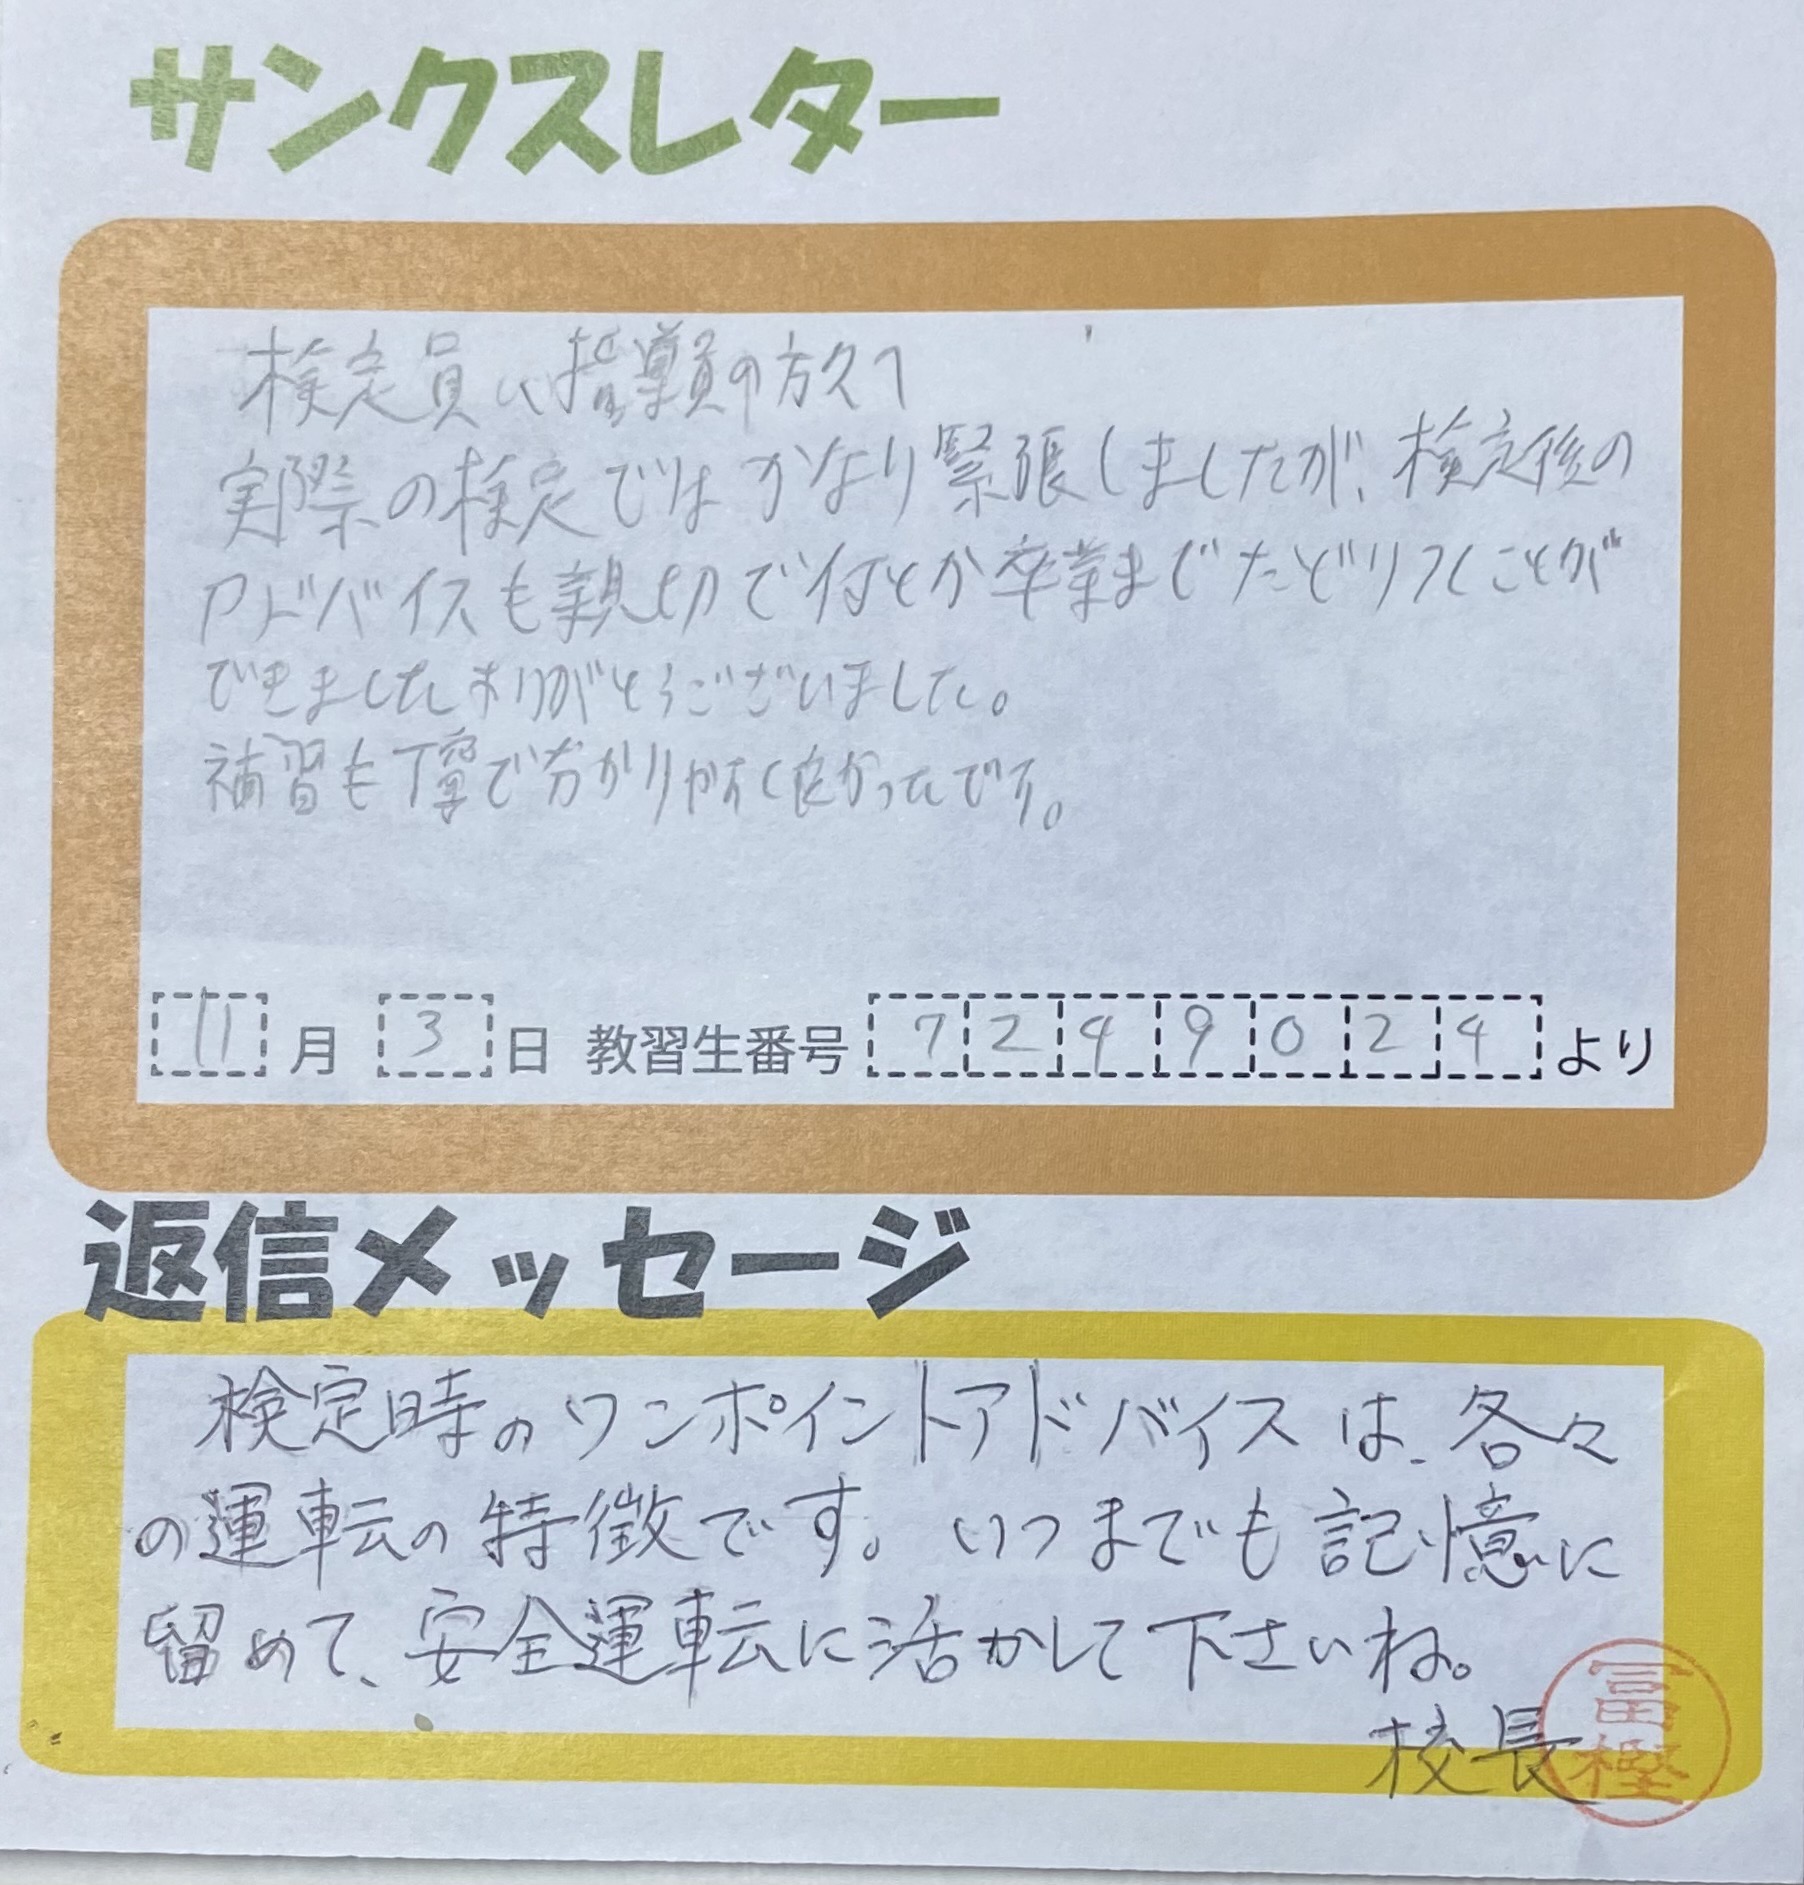 サンクスレター
検定員、指導員の方々へ
実際の検定ではかなり緊張しましたが、検定後の
アドバイスも親切で何とか卒業までたどりつくことが
できました。ありがとうございました。
補習も丁寧で分かりやすく良かったです。
11月3日 教習生番号 7249024より
返信メッセージ
検定時のワンポイントアドバイスは、各々
の運転の特徴です。いつまでも記憶に
留めて、安全運転に活かして下さいね。
校長 冨樫